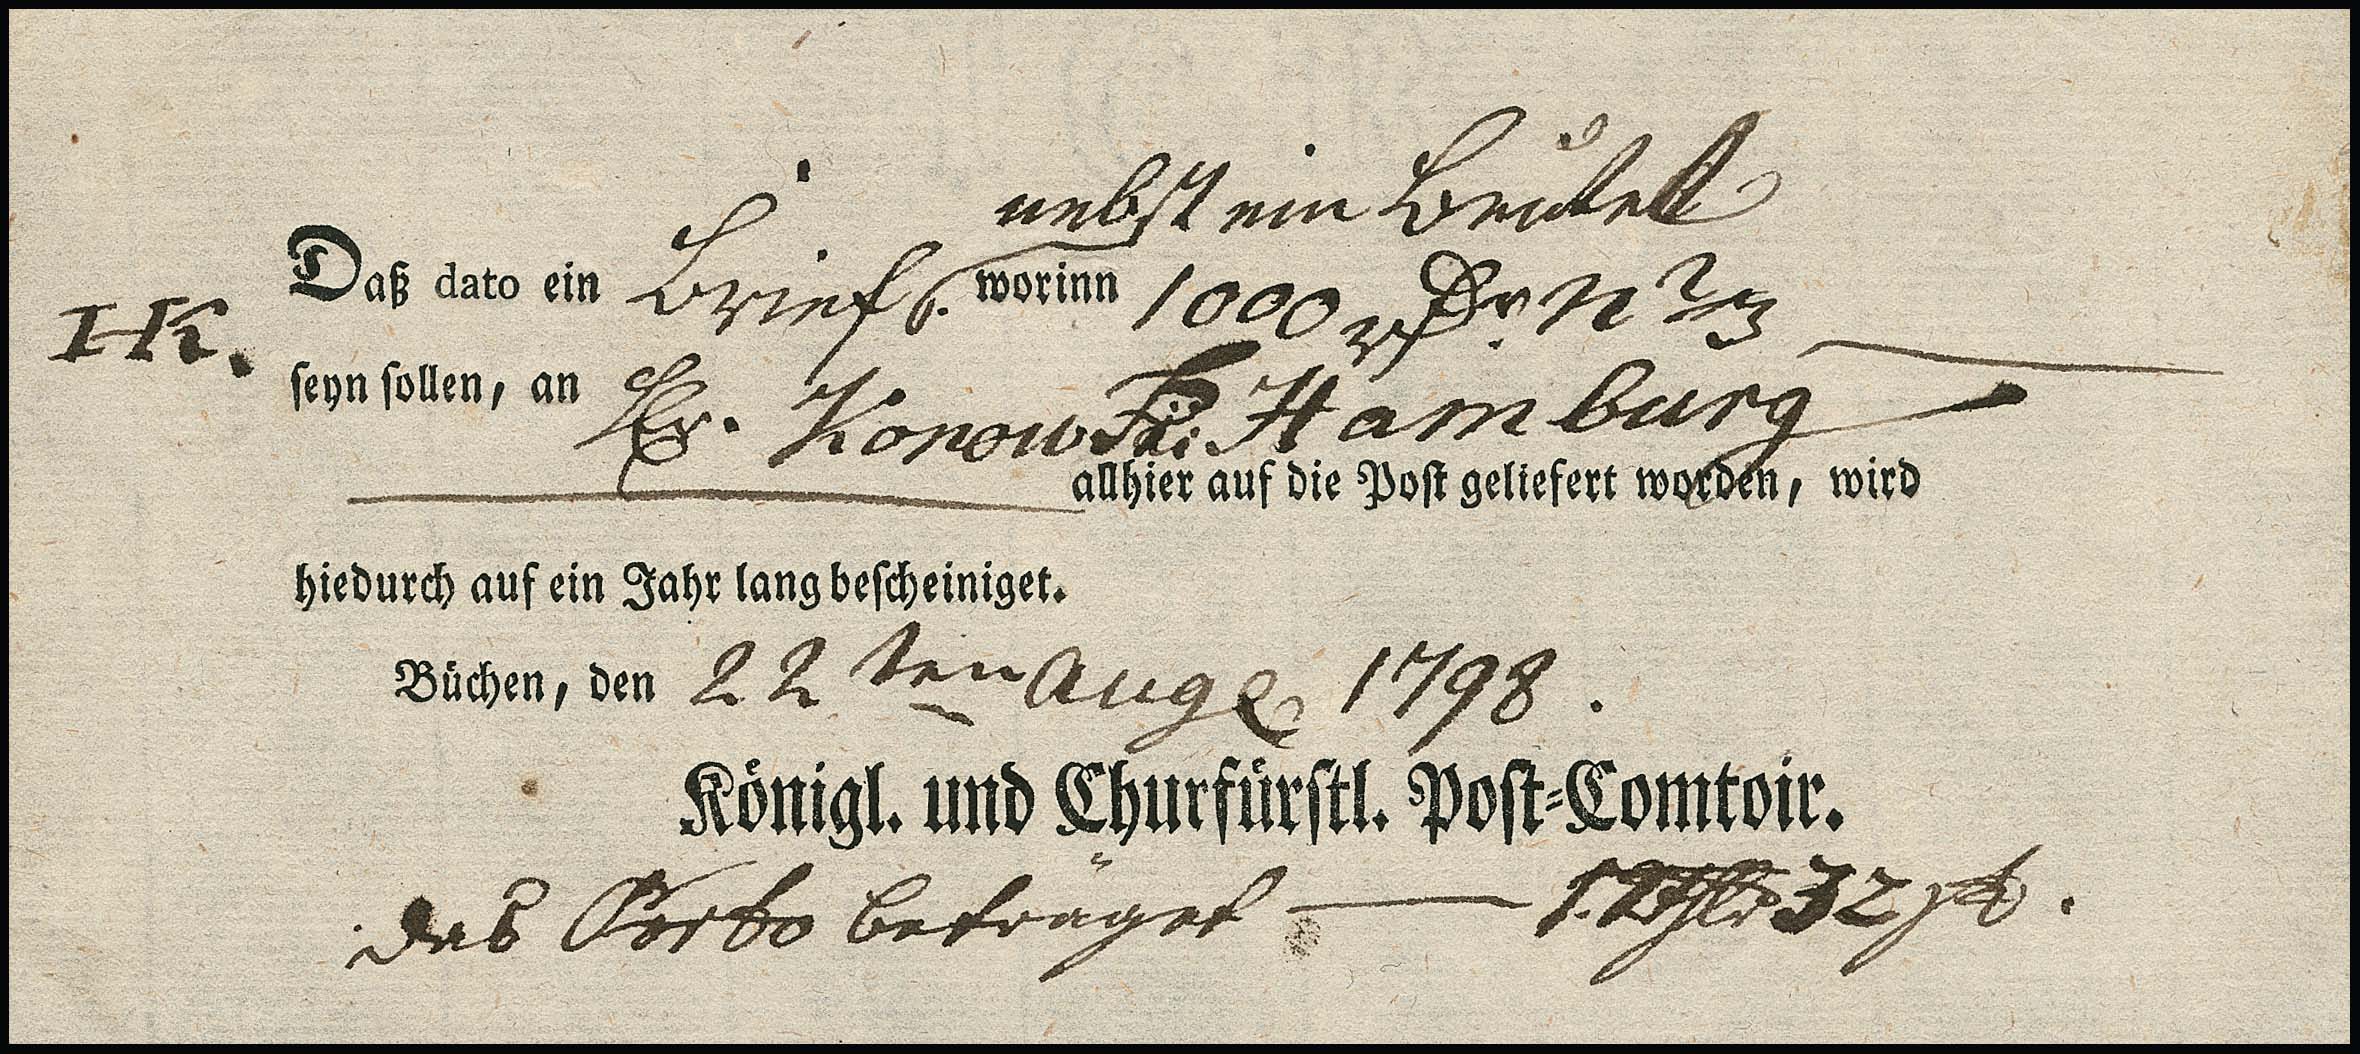 nebst ein Beutell
Daß dato ein Brief. worinn 1000
HK.
seyn sollen, an Hr. Konow Hamburg
allhier auf die Post geliefert worden, wird
hiedurch auf ein Jahr lang bescheiniget.
Büchen, den 22 ten Aug 1798.
Königl. und Churfürstl. Post=Comtoir.
das Porto beträget — 1. 32